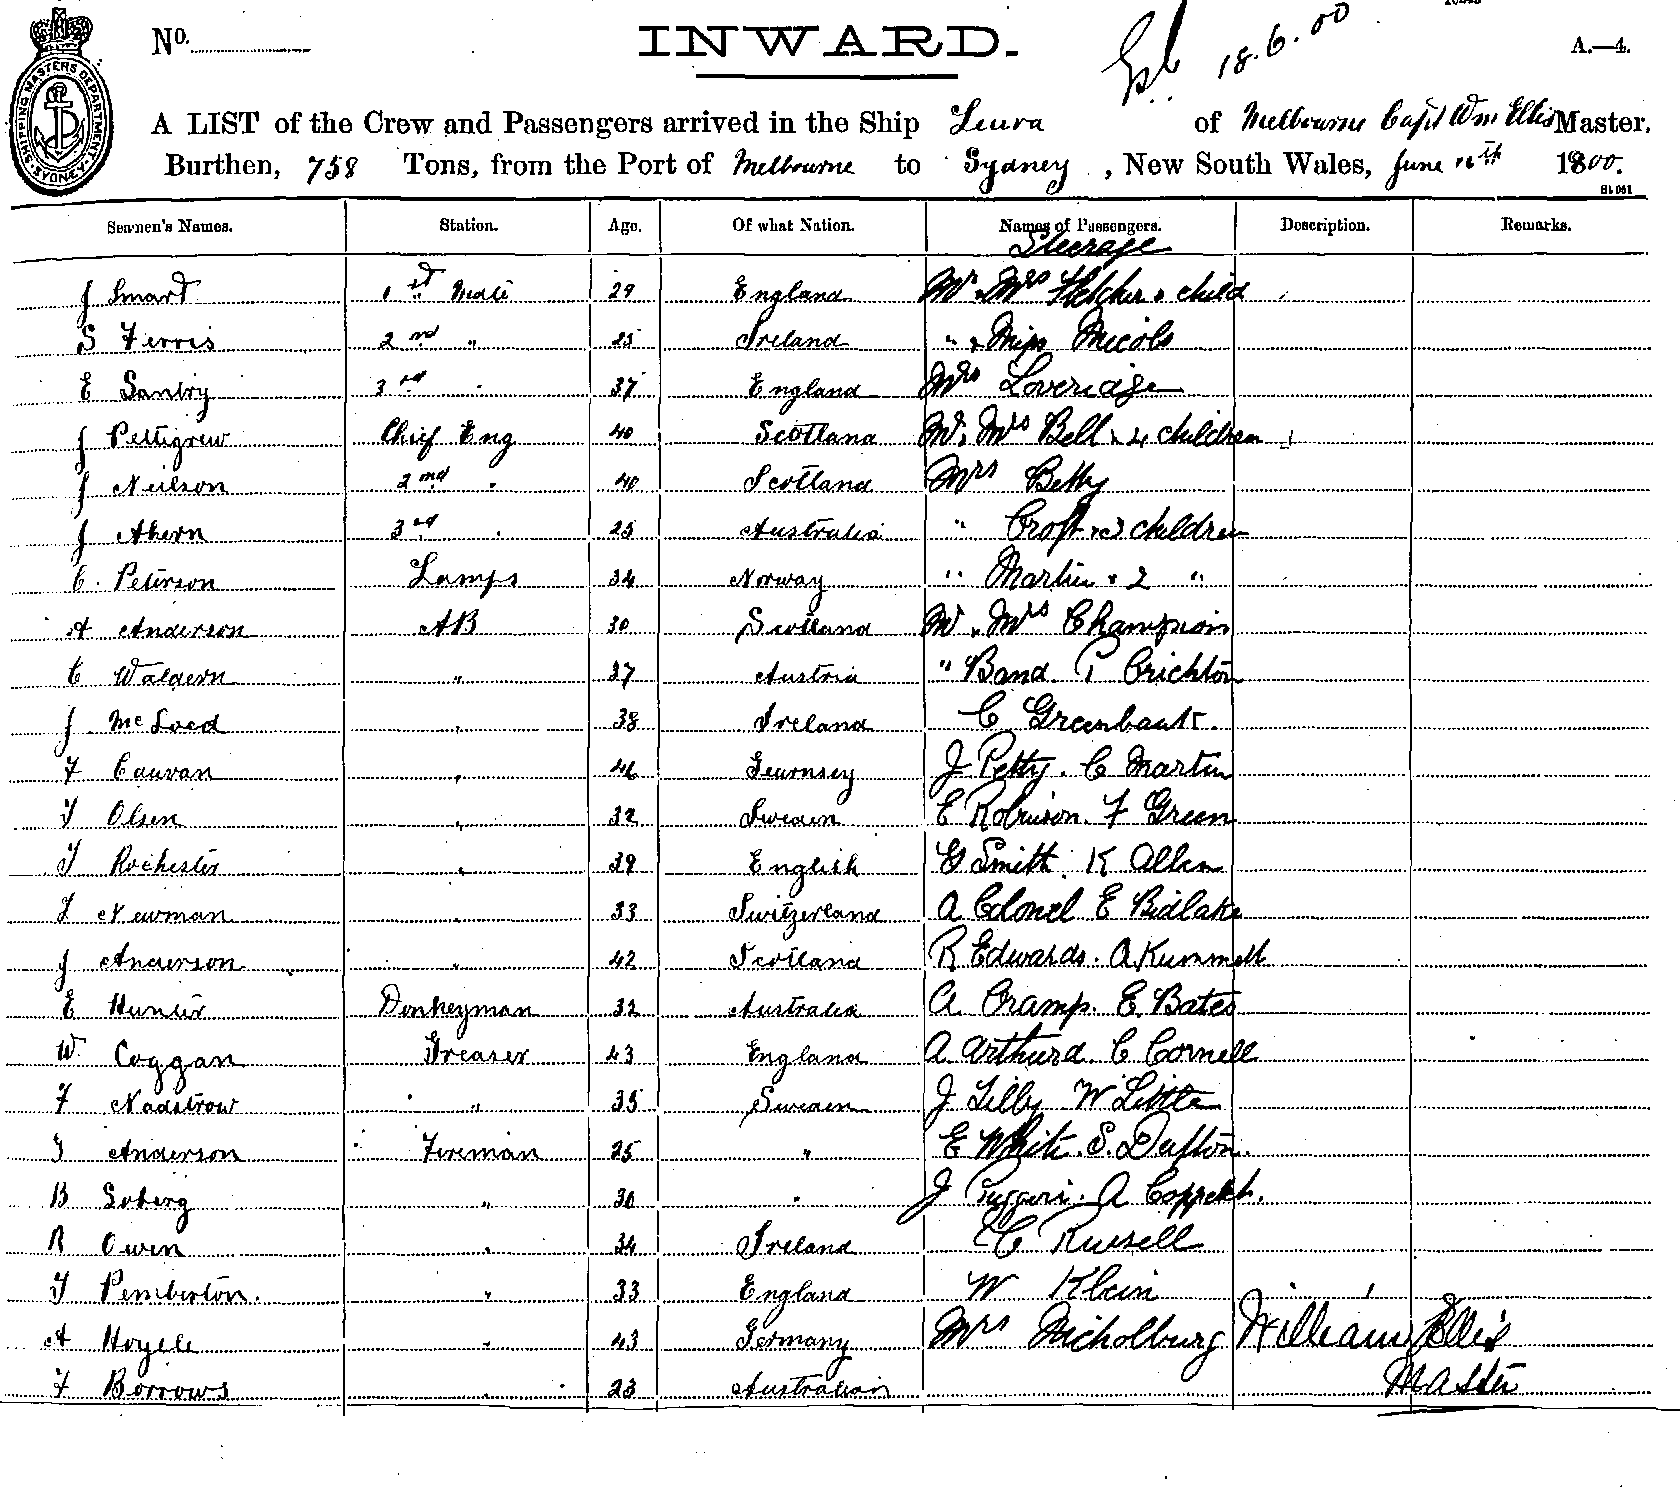 No. INWARD. 18.6.00 A.—4.
SHIPPING MASTERS DEPARTMENT SYDNEY
A LIST of the Crew and Passengers arrived in the Ship Leura of Melbourne Capt Wm Ellis Master,
Burthen, 758 Tons, from the Port of Melbourne to Sydney, New South Wales, June 16th 1800.
Seamen's Names. Station. Age. Of what Nation. Names of Passengers. Description. Remarks.
Steerage
J Smart 1st Mate 29 England Mr & Mrs Fletcher & child
S Ferris 2nd " 25 Ireland " & Miss Nicols
E Santry 3rd " 37 England Mrs Loveridge
J Pettigrew Chief Eng 40 Scotland Mr & Mrs Bell & 4 children
J Neilson 2nd " 40 Scotland Mrs Betty
J Ahern 3rd " 25 Australia " Croft & 3 children
C. Peterson Lamps 34 Norway " Martin & 2 "
A Anderson AB 30 Scotland Mr & Mrs Champion
C Waldern " 37 Austria " Band. T Crichton
J McLoed " 38 Ireland C Greenbank.
F Cauvan " 46 Guernsey J Petty. C Martin
T Olsen " 32 Sweden E Robinson. F Green
T Rochester " 39 English G Smith. K Allen
T Newman " 33 Switzerland A Colonel E Bidlake
J Anderson " 42 Scotland R Edwards. A Kummelt
E Hunter Donkeyman 32 Australia A Cramp. E Bates
W Coggan Greaser 43 England A Arthurd. C Cornell
F Nadstrow " 35 Sweden J Lilly W Little
T Anderson Fireman 25 " E White. S. Dutton.
B Soberg " 30 " J A
R Owen " 34 Ireland C Russell
T Pemberton. " 33 England W Klein
A Hoyele " 43 Germany Mrs Nicholburg William Ellis
F Borrows " 23 Australian Master